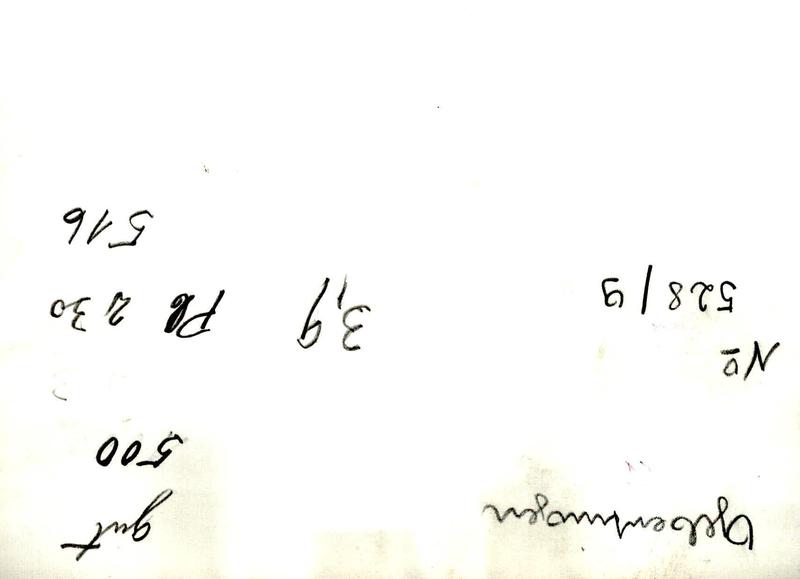 gut
500
No
528/9
3,9
230
516